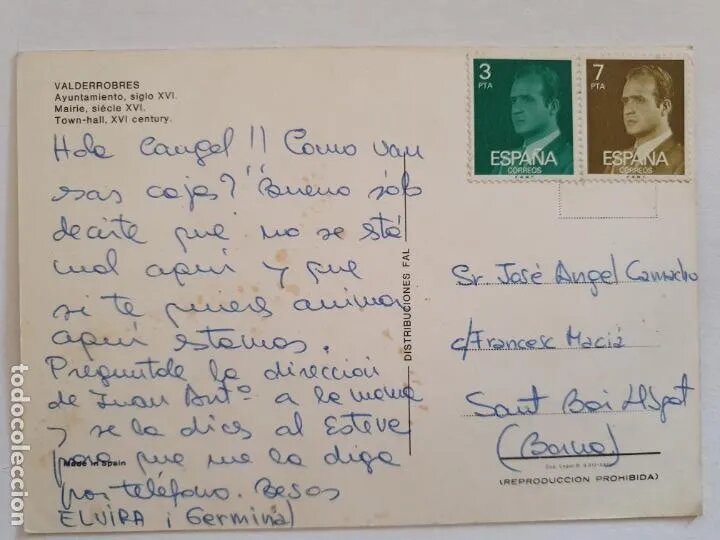 VALDERROBRES
Ayuntamiento, siglo XVI.
Mairie, siécle XVI.
Town-hall, XVI century.
3
PTA
ESPAÑA
CORREOS
7
PTA
ESPAÑA
CORREOS
Hola Cangel!! Como van
esas cajas? Bueno sólo
decirte que no se está
mal aquí y que
si te quieres animar
aquí estamos.
Preguntale la dirección
de Juan Antº a la mama
y se la dices al Esteve
para que me la diga
por teléfono. Besos
ELVIRA i Germinal
Made in Spain
DISTRIBUCIONES FAL
Sr. José Angel Camacho
c/Francesc Macià
Sant Boi Llgat
(Barna)
(REPRODUCCION PROHIBIDA)
todocoleccion